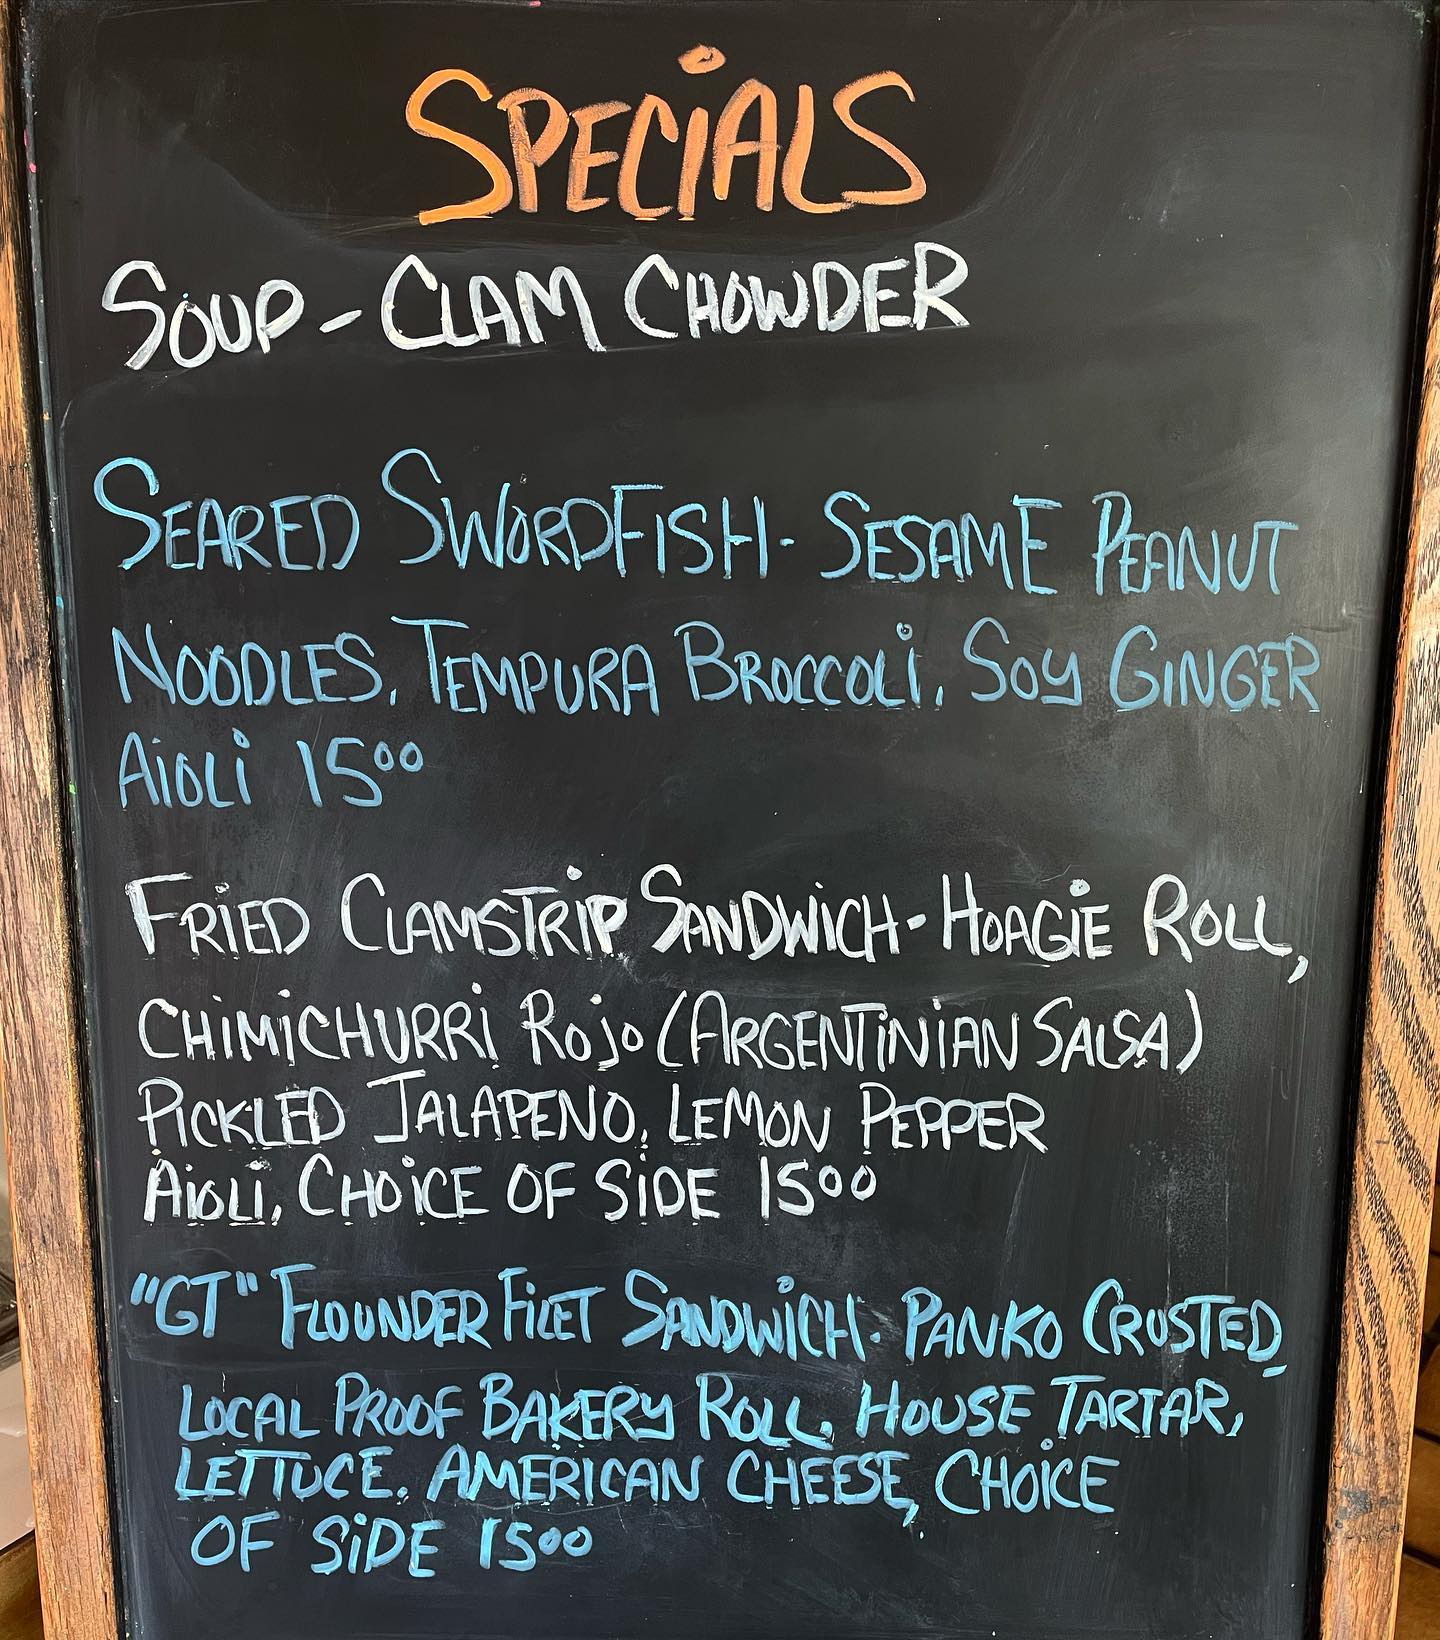 SPECiALS
SOUP - CLAM CHOWDER
SEARED SWORDFISH - SESAME PEANUT
NOODLES, TEMPURA BROCCOLi, SOY GINGER
AiOLi 15⁰⁰
FRiED CLAMSTRiP SANDWiCH - HOAGiE ROLL,
CHiMiCHURRi ROJO (ARGENTiNiAN SALSA)
PiCKLED JALAPENO, LEMON PEPPER
AiOLi, CHOiCE OF SiDE 15⁰⁰
"GT" FLOUNDER FiLET SANDWiCH - PANKO CRUSTED,
LOCAL PROOF BAKERY ROLL, HOUSE TARTAR,
LETTUCE, AMERICAN CHEESE, CHOiCE
OF SiDE 15⁰⁰